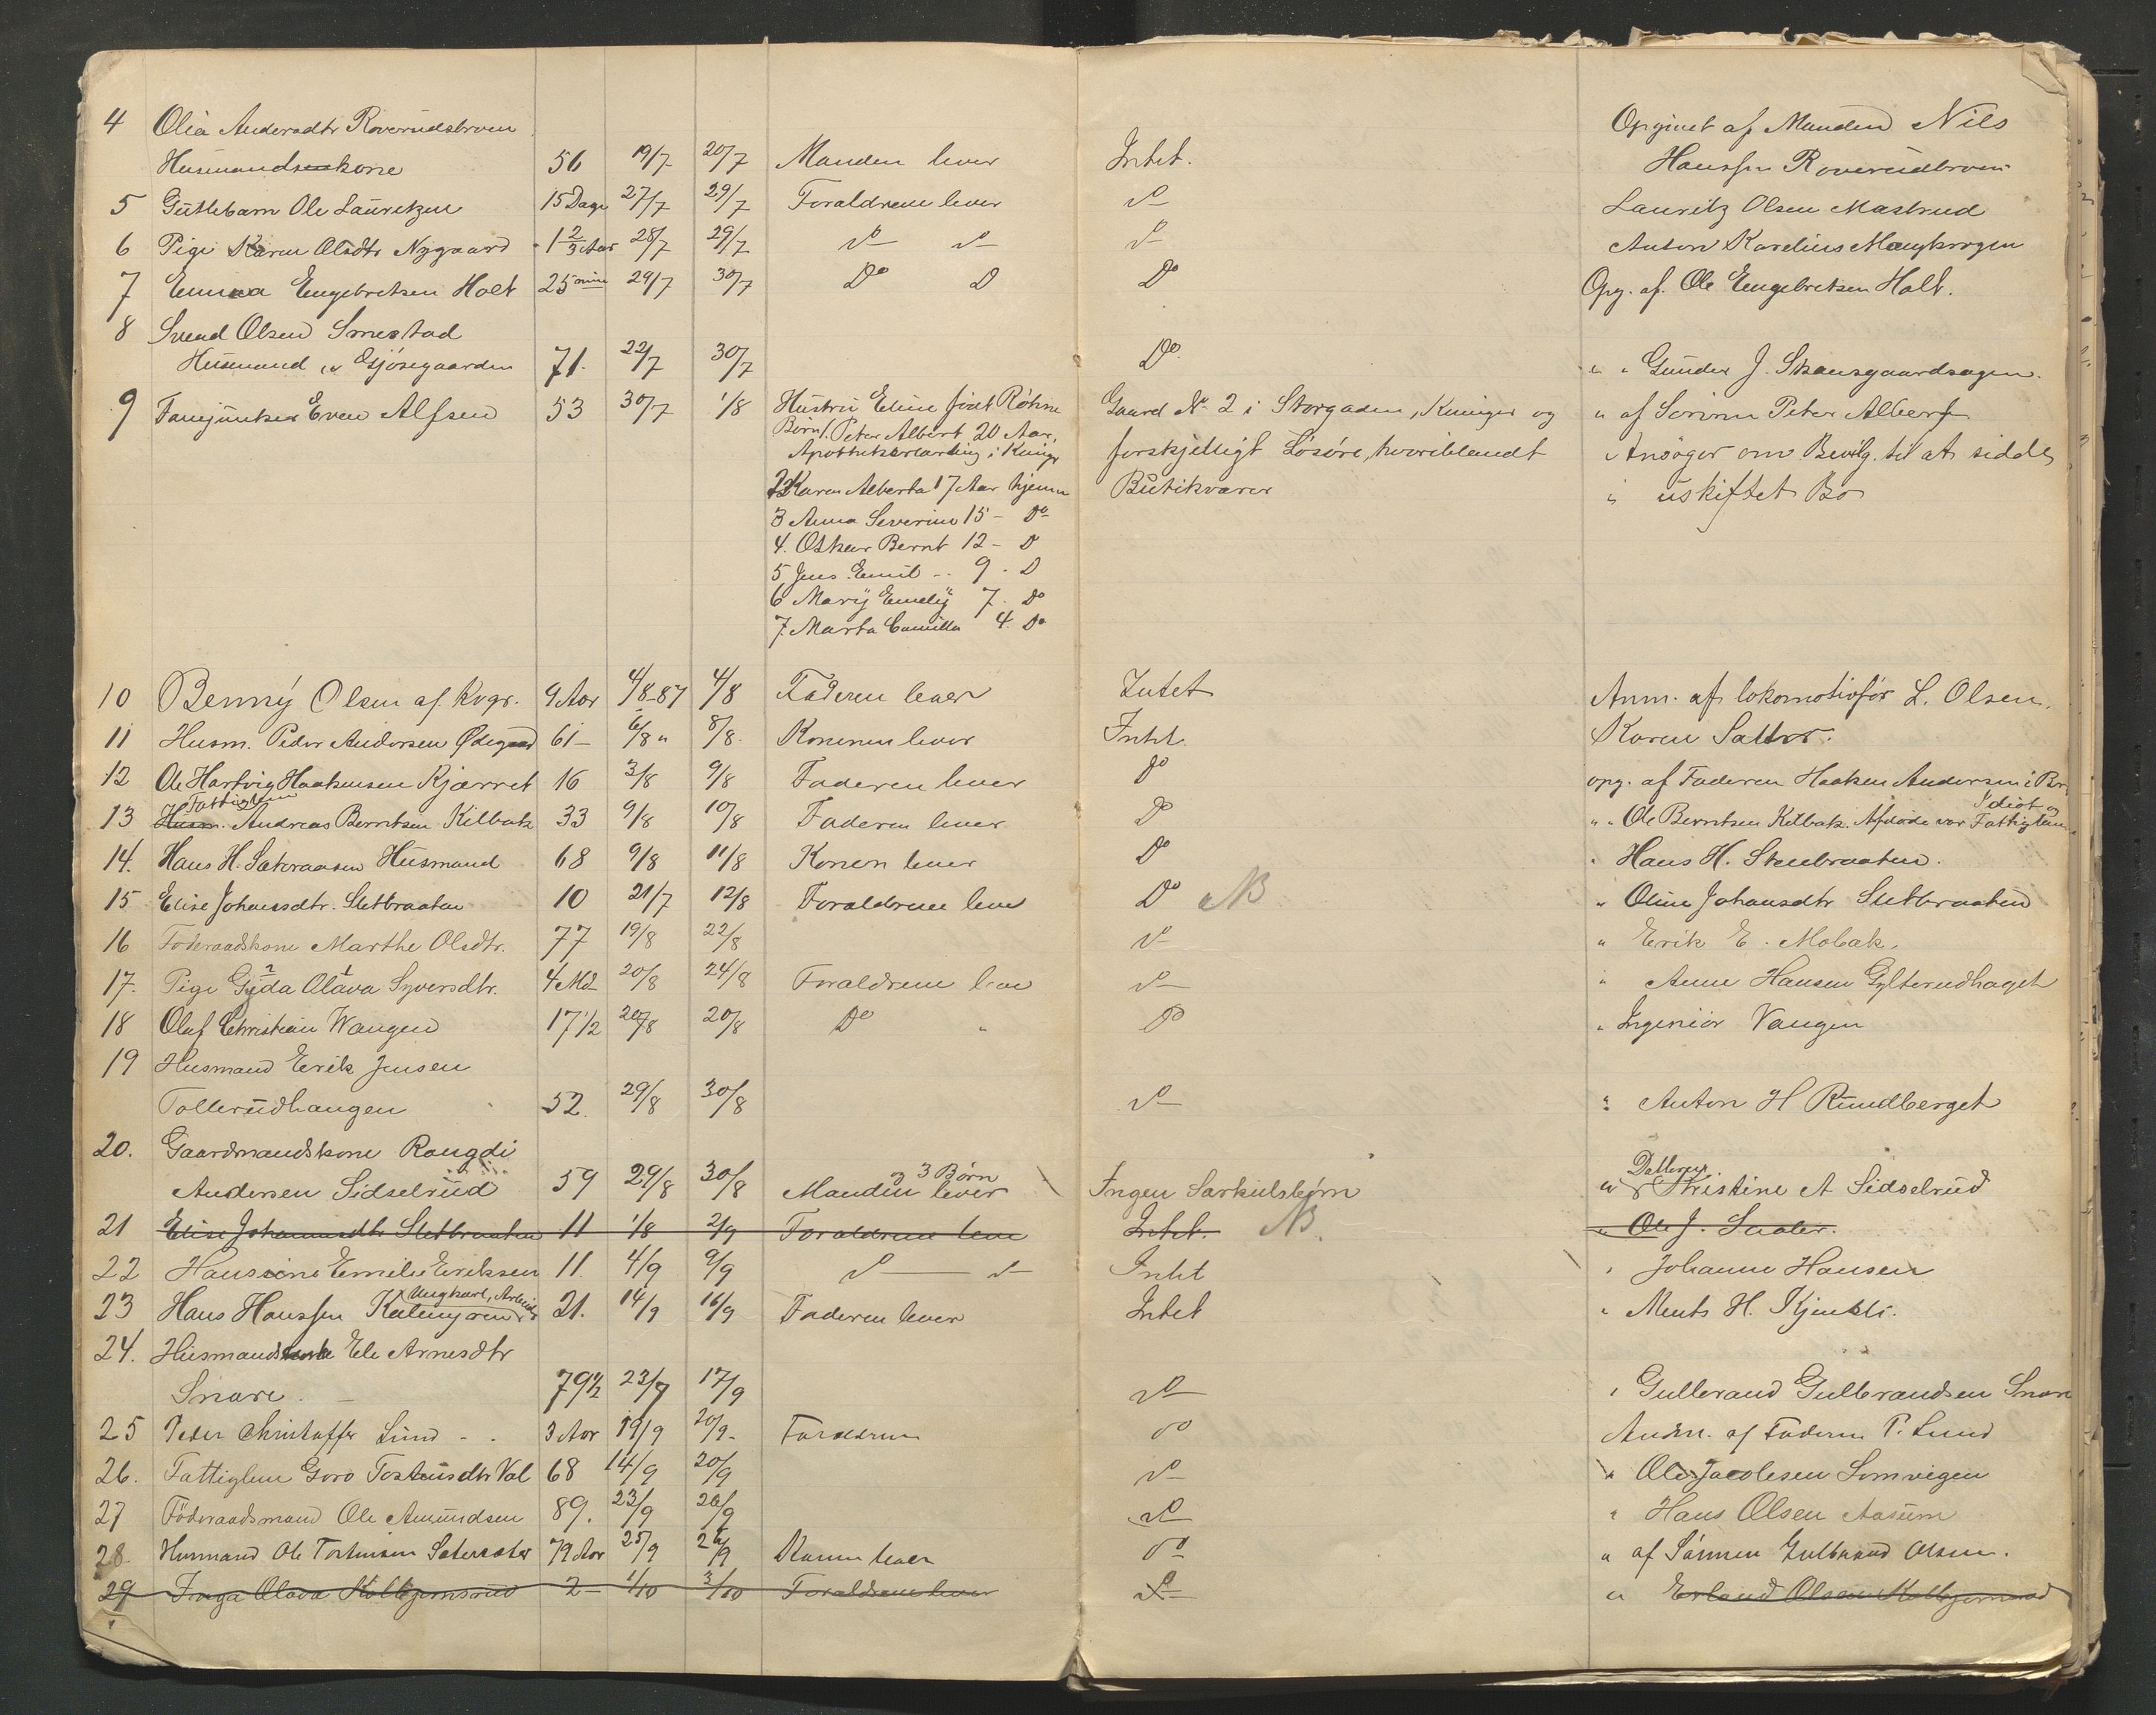 4 Olia Andersdtr Roverudsbroen Opgivet af Manden Nils
Husmandskone 56 19/7 20/7 Manden lever Intet. Hanssen Roverudbroen
5 Guttebarn Ole Lauritzen 15 Dage 27/7 29/7 Forældrene lever do Lauritz Olsen Mastrud
6 Pige Karen Olsdtr Nygaard 1 2/3 Aar 28/7 29/7 do do do Anton Karelius
7 Emma Engebretsen Holt 25 min 29/7 30/7 Do D Do Opg. af. Ole Engebretsen Holt.
8 Svend Olsen Smestad
Husmand 71. 22/7 30/7 Do. " " Gunder J. Skansgaardsagen.
9 Fanejunker Even Alfsen 53 30/7 1/8 Hustru Eline født Røhne Gaard No 2 i Storgaden, Kvinger og " af Sønnen Peter Albert
Børn 1. Peter Albert 20 Aar, forskjelligt Løsøre, hvoriblandt Ansøger om Bevilg. til at sidde
Apothekerlærling i Kvingr
2 Karen Alberta 17 Aar hjemme Butikvarer i uskiftet Bo
3 Anna Severine 15 - Do
4. Oskar Bernt 12 - D
5 Jens Emil - . 9 . D
6 Marÿ Emelÿ 7 . Do
7. Marta Camilla 4. Do
10 Benny Olsen af Kvgr. 9 Aar 4/8-87 4/8 Faderen lever Intet Anm. af lokomotivfør L. Olsen.
11 Husm. Peder Andersen Ødegaard 61 - 6/8 " 8/8. Konen lever Intet. Karen Sætter.
12 Ole Hartvig Haakensen Kjærret 16 3/8 9/8 Faderen lever do opg. af Faderen Haaken Andersen i Br.
Fattiglem Idiot og
13 Husm. Andreas Berntsen Kilbak 33 9/8 10/8 Faderen lever do " " Ole Berntsen Kilbak. Afdøde var Fattiglem
14. Hans H. Husmand 68 9/8 11/8 Konen lever Do " Hans H. Stenbraaten.
15 Elise Johansdtr. Sletbraaten 10 21/7 12/8 Forældrene lever Do NB " Oline Johansdtr Sletbraaten
16 Føderaadskone Marthe Olsdtr. 77 19/8 22/8 do " Erik E. Mobak.
17. Pige Gyda Olava Syversdtr. 4 Md 20/8 24/8 Forældrene lever do " Anne Hansen Gylterudhaget
18 Oluf Christian Wangen 17 1/2 20/8 20/8 Do " Do " Ingeniør Vangen
19 Husmand Erik Jensen
Tollerudhaugen 52. 29/8 30/8 do " Anton H Rundberget
20. Gaardmandskone Rangdi
3 Børn Datteren
Andersen Sidselrud 59 29/8 30/8 Manden lever Ingen Særkuldsbørn " Kristine A Sidselrud
21 Elise Johannesdtr Sletbraaten 11 1/8 2/9 Forældrene leve Intet. NB. " Ole J. Saaler.
22 Hansine Emilie Eriksen 11. 4/9 9/9 do do Intet " Johanne Hansen
Ungkarl, Arbeider
23 Hans Hanssen 21. 14/9 16/9 Faderen lever Intet " Ments H. Kjenkli.
24. Husmandsenke Eli Arnesdtr
Snare. 79 1/2 23/7 17/9 do " Gulbrand Gulbrandsen Snare
25 Peder Christoffer Lund - . 3 Aar 19/9 20/9. Forældrene do Anm. af Faderen P. Lund
26. Fattiglem Goro Tostensdtr Val 68 14/9 20/9 do " Ole Jacobsen Somvigen
27 Føderaadsmand Ole Amundsen 89. 23/9 26/9 do " Hans Olsen Aasum
28. Husmand Ole Torstensen 79 Aar 25/9 26/9 Konen lever do " af Sønnen Gulbrand Olsen.
29 Inga Olava Kolbjørnsrud 2 - 1/10 3/10 Forældrene lever do " Erland Olsen Kolbjørnsrud